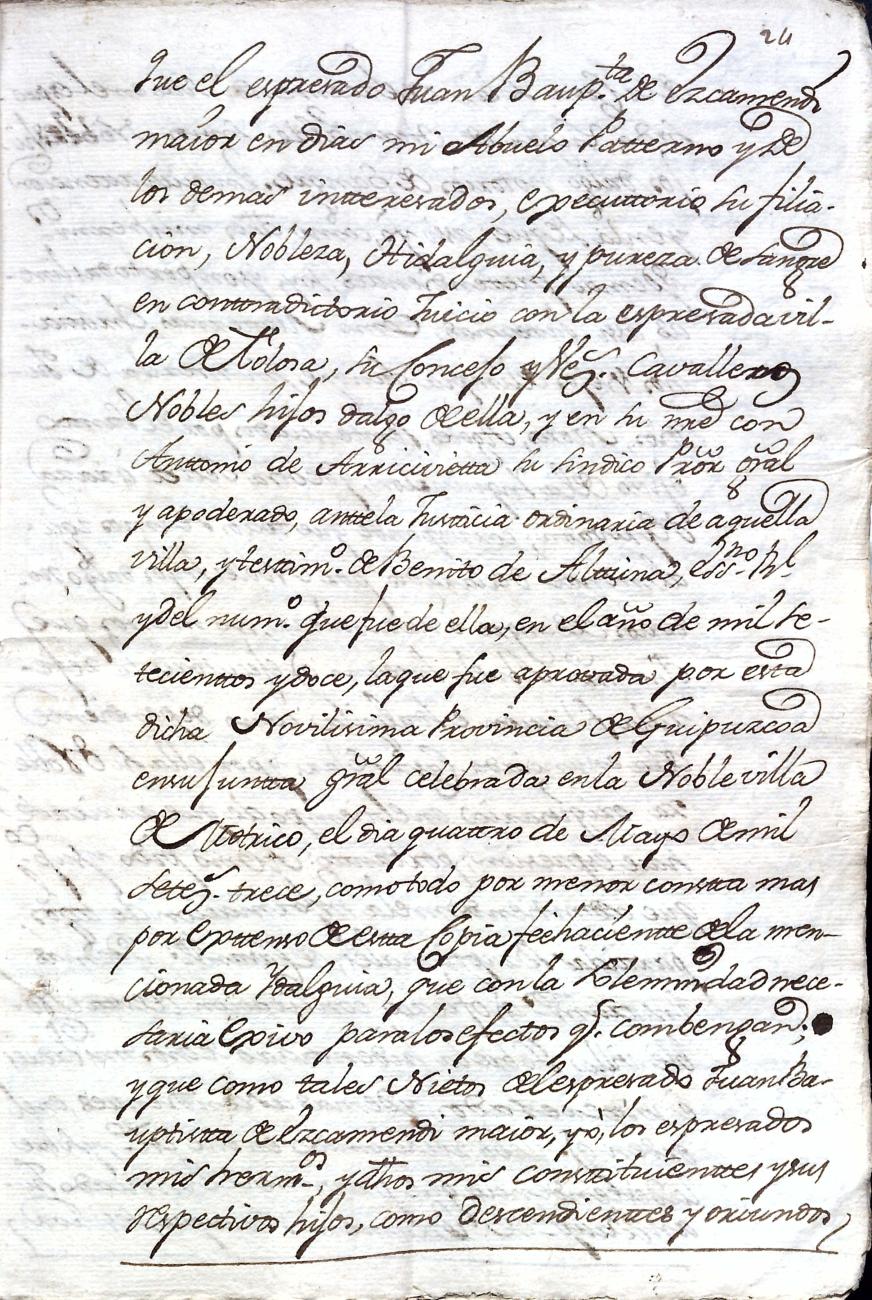 24
que el espresado Juan Baup.ta de Ezcamendi
maior en dias mi Abuelo Patterno y de
los demas intteresados, executtorio su filia-
cion, Nobleza, Hidalguia, y pureza de sangre
en conttradicttorio Juicio con la espresada vil-
la de Tolosa, su Concejo y Vez.s Cavalleros
Nobles hijos dalgo de ella, y en su nre con
Anttonio de Arricivietta su sindico Pror gral
y apoderado, antte la Justicia ordinaria de aquella
villa, y testim.o de Benito de Alttuna, ess.no Rl
y del num.o que fue de ella, en el año de mil se-
tecienttos y doce, la que fue aprovada por esta
dicha Novilisima Provincia de Guipuzcoa
en su Juntta gral celebrada en la Noble villa
de Motrico, el dia quattro de Mayo de mil
setez.s trece, como todo por menor constta mas
por exttenso de estta Copia feehacientte de la men-
cionada Ydalguia, que con la solemnidad nece-
saria exivo para los efectos q.e combengan;
y que como tales Nietos del espresado Juan Ba-
uptistta de Ezcamendi maior, yo, los espresados
mis herm.os, y dhos mis consttituienttes y sus
respectivos hijos, como descendienttes y oriundos